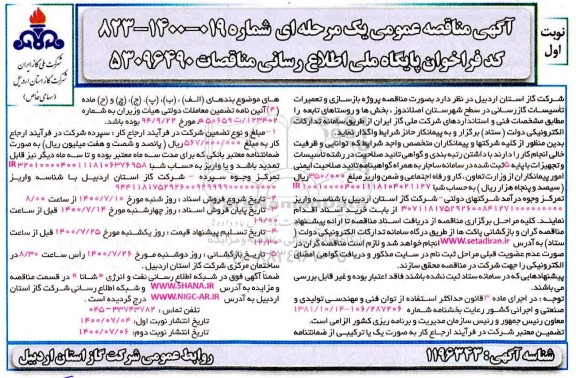 آگهی مناقصه عمومی یک مرحله ای شماره ۰۱۹-۱۴۰۰-۸۲۳
کد فراخوان پایگاه ملی اطلاع رسانی مناقصات ۵۳۰۹۶۴۹۰
نوبت
اول
شرکت ملی گاز ایران
شرکت گاز استان اردبیل
(سهامی خاص)
شرکت گاز استان اردبیل در نظر دارد بصورت مناقصه پروژه بازسازی و تعمیرات
تأسیسات گازرسانی در سطح شهرستان اصلاندوز، بخش ها و روستاهای تابعه را
مطابق مشخصات فنی و استانداردهای شرکت ملی گاز ایران از طریق سامانه تدارکات
الکترونیکی دولت (ستاد) برگزار و به پیمانکار حائز شرایط واگذار نماید.
بدین منظور از کلیه شرکتها و پیمانکاران متخصص واجد شرایط که توانایی و ظرفیت
خالی انجام کار، دارا با داشتن رتبه بندی و گواهی تائید صلاحیت در رشته تأسیسات
و تجهیزات با پایه ۵ ثبت شده در سامانه ساجار به همراه گواهینامه تائید صلاحیت ایمنی
امور پیمانکاران از وزارت تعاون، کار و رفاه اجتماعی و ضمن واریز مبلغ ۳۵۰/۰۰۰ ریال
(سیصد و پنجاه هزار ریال) به حساب شبا
تمرکز وجوه درآمد شرکتهای دولتی - شرکت گاز استان اردبیل با شناسه واریز
از بابت خرید اسناد اقدام
نمایند. کلیه مراحل برگزاری مناقصه از دریافت اسناد مناقصه تا ارائه پیشنهاد
مناقصه گران و بازگشائی پاکت ها از طریق درگاه سامانه تدارکات الکترونیکی دولت (
ستاد) به آدرس www.setadiran.ir انجام خواهد شد و لازم است مناقصه گران در
صورت عدم عضویت قبلی مراحل ثبت نام در سایت مذکور و دریافت گواهی امضای
الکترونیکی را جهت شرکت در مناقصه محقق سازند.
پیشنهادهایی که در سامانه ستاد ثبت نشده باشند فاقد اعتبار بوده و غیر قابل بررسی
می باشند.
توجه: در اجرای ماده ۳ قانون حداکثر استفاده از توان فنی و مهندسی تولیدی و
صنعتی و اجرائی کشور رعایت بخشنامه شماره ۱۰۶/۲۸۷۲۰۶-۱۳۸۱/۱۰/۱۴
معاون رئیس جمهور و رئیس سازمان مدیریت و برنامه ریزی کشور الزامی است.
تضمین معتبر شرکت در فرآیند ارجاع کار به صورت یک یا ترکیبی از ضمانتنامه
های موضوع بندهای (الف)، (ب)، (پ)، (ج)، (چ) و (ح) ماده
(۴) آئین نامه تضمین معاملات دولتی هیأت وزیران به شماره
۱۲۳۴۰۲/ت۵۰۶۵۹ه مورخ ۹۴/۹/۲۲ بوده باشد.
۱- مبلغ و نوع تضمین شرکت در فرآیند ارجاع کار: سپرده شرکت در فرآیند ارجاع
کار به مبلغ ۵۶۷/۰۰۰/۰۰۰ ریال (پانصد و شصت و هفت میلیون ریال) به صورت
ضمانتنامه معتبر بانکی که برای مدت سه ماه معتبر بوده و تا سه ماه دیگر نیز قابل
تمدید باشد و یا واریز به حساب شبا
تمرکز وجوه سپرده - شرکت گاز استان اردبیل با شناسه واریز
۲- تاریخ شروع فروش اسناد: روز شنبه مورخ ۱۴۰۰/۷/۱۰ از ساعت ۸/۰۰
۳- تاریخ پایان فروش اسناد: روز چهارشنبه مورخ ۱۴۰۰/۷/۱۴ قبل از ساعت
۴- تاریخ تسلیم پیشنهاد قیمت: روز یکشنبه مورخ ۱۴۰۰/۷/۲۵ قبل از ساعت
۵- تاریخ بازگشائی: روز دوشنبه مورخ ۱۴۰۰/۷/۲۶ رأس ساعت ۸/۳۰ در
ساختمان مرکزی شرکت گاز استان اردبیل.
ضمناً آگهی فوق در شبکه اطلاع رسانی نفت و انرژی "شانا" در قسمت مناقصه
و مزایده به آدرس WWW.SHANA.IR و شبکه اطلاع رسانی شرکت گاز استان
اردبیل به آدرس WWW.NIGC-AR.IR درج گردیده است.
تلفن تماس: ۳۳۷۴۳۷۸۲-۰۴۵
تاریخ انتشار نوبت اول: ۱۴۰۰/۰۷/۰۴
تاریخ انتشار نوبت دوم: ۱۴۰۰/۰۷/۰۶
شناسه آگهی: ۱۱۹۶۳۴۳
روابط عمومی شرکت گاز استان اردبیل